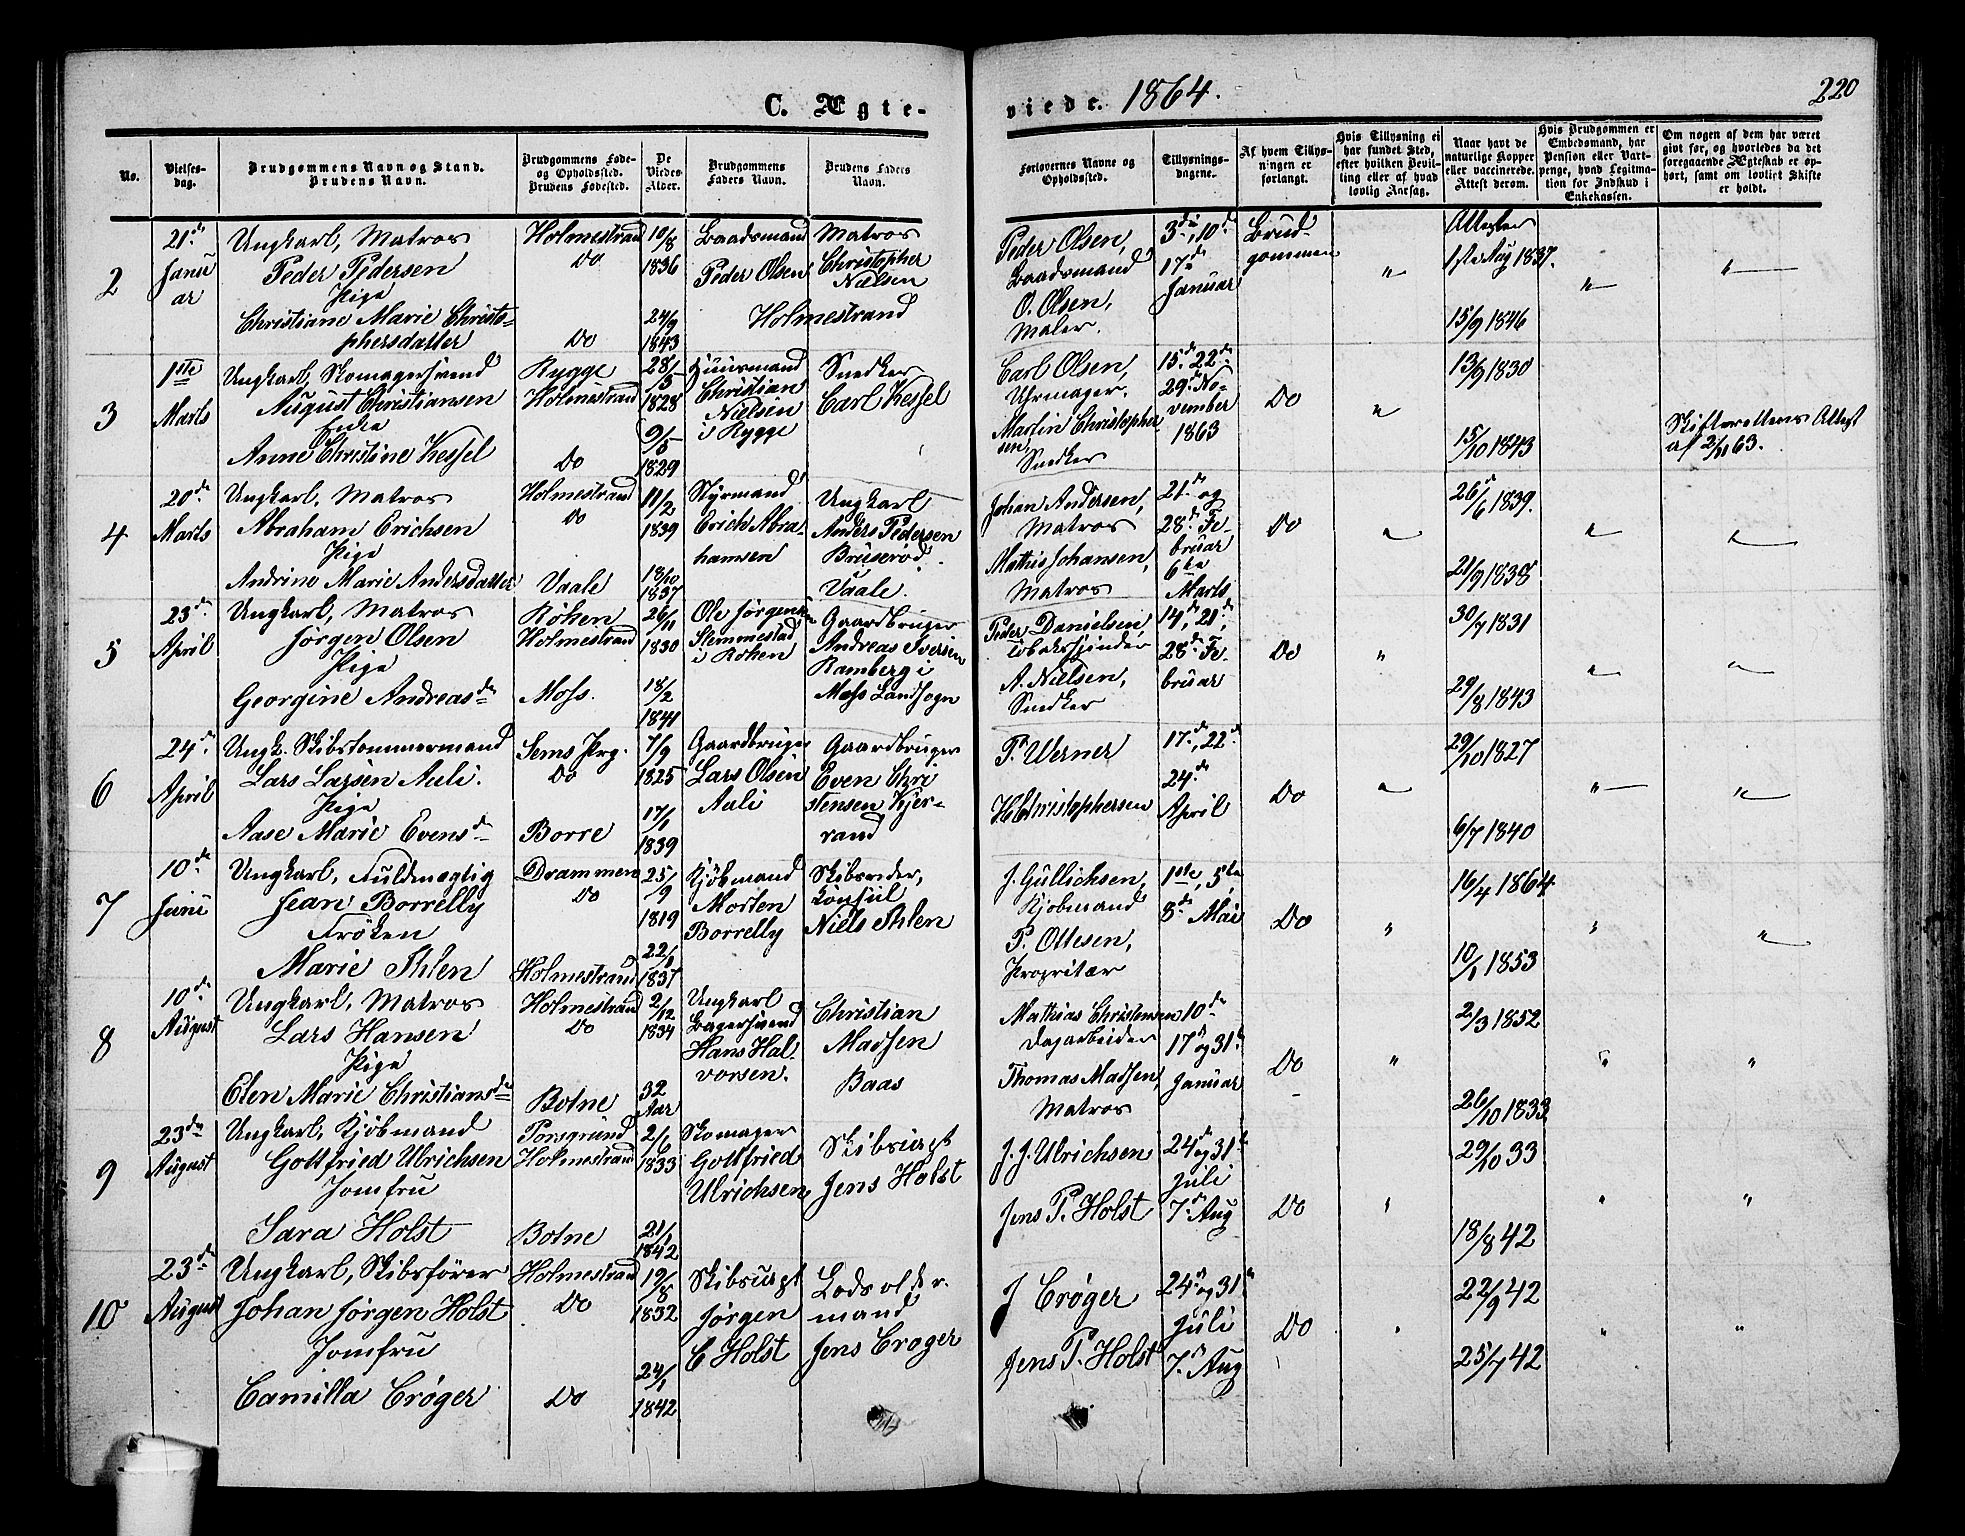 C. Ægte-
viede. 1864.
220
No.
Vielses-
dag.
Brudgommens Navn og Stand.
Brudens Navn.
Brudgommens Føde-
og Opholdssted.
Brudens Fødested.
De
Viedes
Alder.
Brudgommens
Faders Navn.
Brudens Faders
Navn.
Forlovernes Navne og
Opholdssted.
Tillysnings-
dagene.
Af hvem Tillys-
ningen er
forlangt.
Hvis Tillysning ei
har fundet Sted,
efter hvilken Bevil-
ling eller af hvad
lovlig Aarsag.
Naar havt de
naturlige Kopper
eller vaccinerede.
Attest derom.
Hvis Brudgommen er
Embedsmand, har
Pension eller Vart-
penge, hvad Legitima-
tion for Indskud i
Enkekassen.
Om nogen af dem har været
gift før, og hvorledes da det
foregaaende Ægteskab er op-
hørt, samt om lovligt Skifte
er holdt.
2
21de
Janu
ar
Ungkarl, Matros
Peder Pedersen
Pige
Christiane Marie Christo-
phersdatter
Holmestrand
Do
Do
10/8
1836
24/9
1843
Baadsmand
Peder Olsen
Matros
Christopher
Nielsen
Holmestrand
Peder Olsen,
Baadsmand
O. Olsen,
Maler.
3de, 10de
17de
Januar
Brud
gommen
"
Attester
1ste Aug 1837.
15/9 1846
"
"
3
1ste
Marts
Ungkarl, Skomagersvend
August Christiansen
Enke
Anne Christine Kessel
Rygge
Holmestrand
Do
28/5
1828
9/5
1829
Huusmand
Christian
Nielsen
i Rygge
Snedker
Carl Kessel
Carl Olsen,
Uhrmager.
Martin Christopher
sen,
Snedker
15de 22de
29de No-
vember
1863
Do
"
13/9 1830
15/10 1843
Skifterettens Attest
af 2/11 63.
4
20de
Marts
Ungkarl, Matros
Abraham Erichsen
Pige
Andrine Marie Andersdatter
Holmestrand
Do
Vaale
11/2
1839
18/10
1837
Styrmand
Erich Abra-
hamsen
Ungkarl
Anders Pedersen
Bruserød.
Vaale.
Johan Andersen,
Matros
Mathis Johansen,
Matros
21de og
28de Fe-
bruar
6te
Marts
Do
"
26/6 1839.
21/9 1838
"
"
5
23de
April
Ungkarl, Matros
Jørgen Olsen
Pige
Georgine Andreasda
Røken
Holmestrand
Moss.
26/11
1830
18/2
1841
Ole Jørgensen
Slemmestad
i Røken
Gaardbruger
Andreas Iversen
Ramberg i
Moss Landsogn
Peder Danielsen,
Tobaksspinder
A. Nielsen,
Snedker
14de, 21de,
28de Fe-
bruar
Do
"
30/7 1831
29/8 1843
"
"
6
24de
April
Ungk. Skibstømmermand
Lars Larsen Auli.
Pige
Aase Marie Evensda
Sems Prg.
Do
Borre
7/9
1825
17/1
1839
Gaardbruger
Lars Olsen
Auli
Gaardbruger
Even Chri
stensen Kjer-
rand
P. Werner
H Christophersen
17de, 22de
24de
April
Do
"
29/10 1827
6/7 1840
"
"
7
10de
Juni
Ungkarl, Fuldmægtig
Jean Borrelly
Frøken
Marie Ihlen
Drammen
Do
Holmestrand
25/9
1819
22/1
1837
Kjøbmand
Morten
Borrelly
Skibsreder,
Konsul
Niels Ihlen
J. Gullichsen,
Kjøbmand
P. Ottesen,
Propritær
1ste, 5te
8de Mai
Do
"
16/4 1864.
10/1 1853
"
"
8
10de
August
Ungkarl, Matros
Lars Hansen
Pige
Elen Marie Christiansda
Holmestrand
Do
Botne
2/12
1834
32
Aar
Ungkarl
Bagersvend
Hans Hal.
vorsen.
Christian
Madsen
Baas
Mathias Christensen
Dagarbeider
Thomas Madsen,
Matros
10de
17de og 31te
Januar
Do
"
2/3 1852
26/10 1833
"
"
9
23de
August
Ungkarl, Kjøbmand
Gottfried Ulrichsen
Jomfru
Sara Holst
Porsgrund
Holmestrand
Botne
2/6
1833
21/1
1842
Skomager
Gottfried
Ulrichsen
Skibsrigt
Jens Holst
J. J. Ulrichsen
Jens P. Holst
24de og 31te
Juli
7de Aug
Do
"
29/10 33
18/8 42
"
"
10
23de
August
Ungkarl, Skibsfører
Johan Jørgen Holst
Jomfru
Camilla Crøger
Holmestrand
Do
Do
19/8
1832
24/1
1842
Skibsrigt
Jørgen
C Holst
Lodsolder.
mand,
Jens Crøger
J Crøger
Jens P. Holst
24de og 31te
Juli
7de Aug
Do
"
22/9 42
25/7 42
"
"